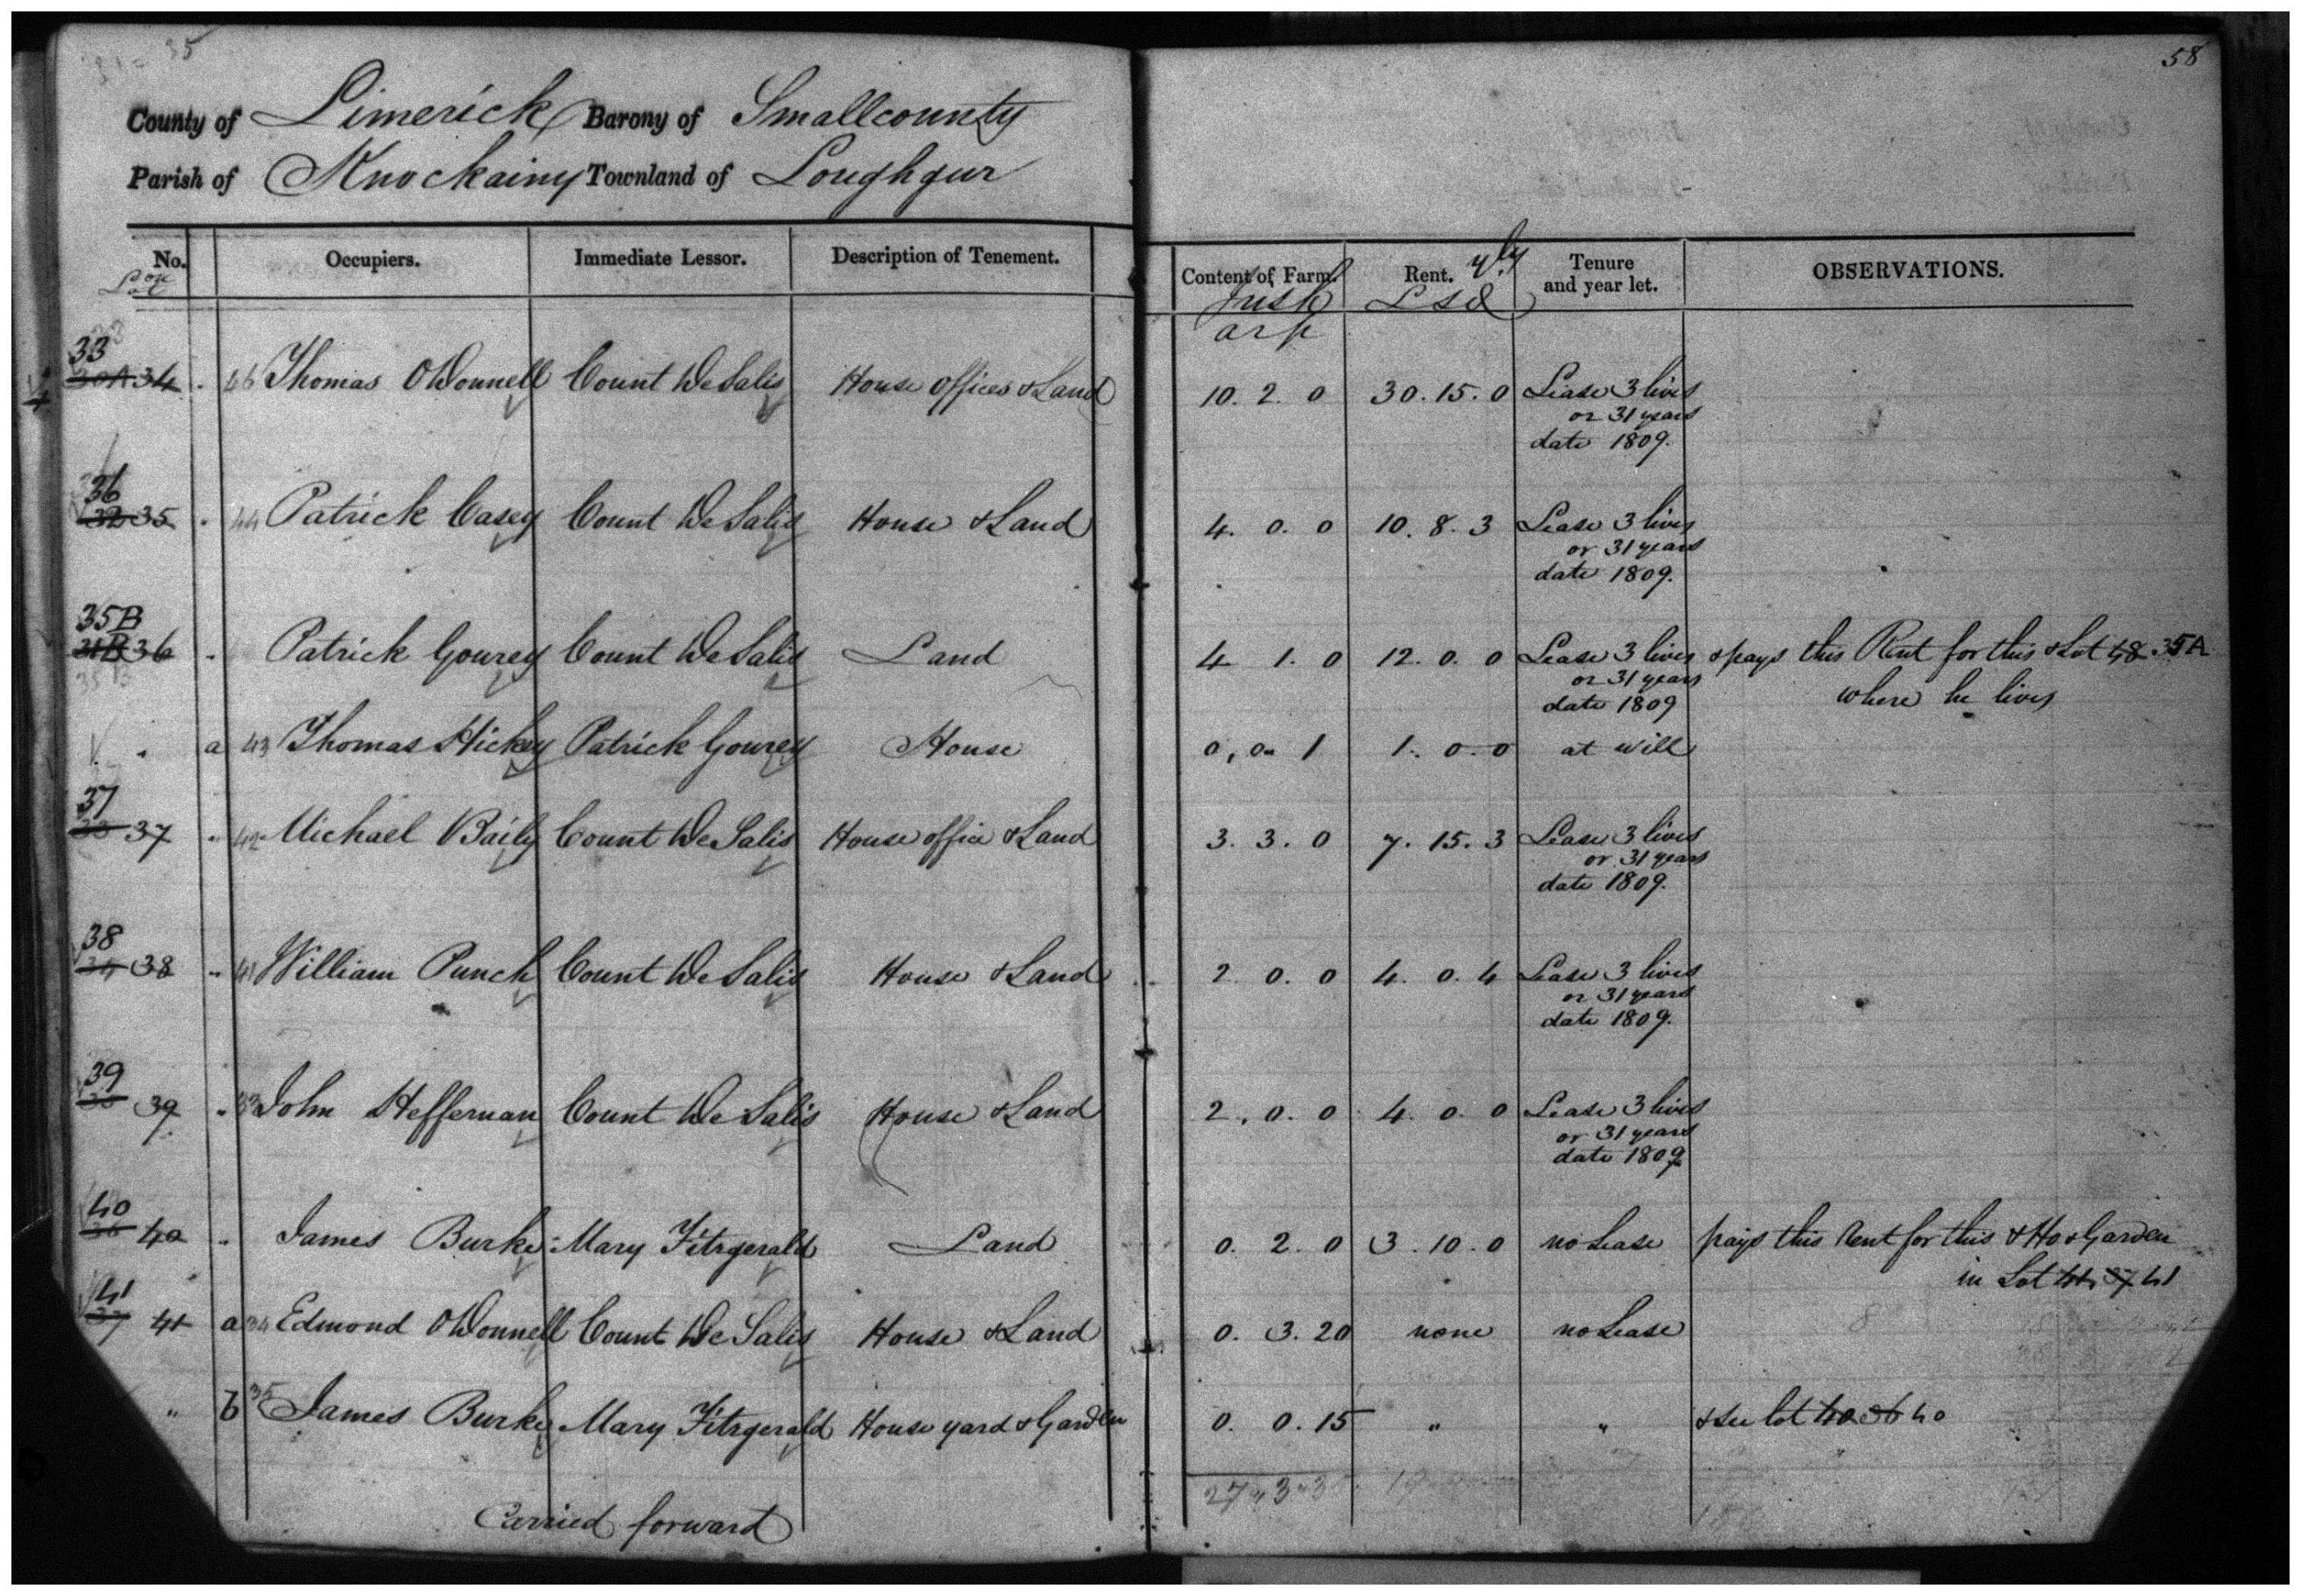 58
County of Limerick Barony of Smallcounty
Parish of Knockainy Townland of Loughgur
No. Occupiers. Immediate Lessor. Description of Tenement. Content of Farm. Rent. yly Tenure and year let. OBSERVATIONS.
Irish £ s d
a r p
33
34 46 Thomas ODonnell Count De Salis House offices & Land 10. 2. 0 30. 15. 0 Lease 3 lives
or 31 years
date 1809.
36
32 35 44 Patrick Casey Count De Salis House & Land 4. 0. 0 10. 8. 3 Lease 3 lives
or 31 years
date 1809.
35B
31B 36 Patrick Gourey Count De Salis Land 4 1. 0 12. 0. 0 Lease 3 lives & pays this Rent for this & Lot 48 35A
or 31 years where he lives
date 1809
a 43 Thomas Hickey Patrick Gourey House 0, 0 1 1. 0. 0 at will
37
37 42 Michael Baily Count De Salis House office & Land 3. 3. 0 7. 15. 3 Lease 3 lives
or 31 years
date 1809.
38
34 38 41 William Punch Count De Salis House & Land 2 0. 0 4. 0. 4 Lease 3 lives
or 31 years
date 1809.
39
39 33 John Heffernan Count De Salis House & Land 2. 0. 0 4. 0. 0 Lease 3 lives
or 31 years
date 1809
40
36 40 James Burke Mary Fitzgerald Land 0. 2. 0 3. 10. 0 no Lease pays this Rent for this & Ho & Garden
in Lot 41 37 41
41
37 41 a 34 Edmond ODonnell Count De Salis House & Land 0. 3. 20 none no Lease
" b 35 James Burke Mary Fitzgerald House yard & Garden 0. 0. 15 " " & see lot 40 36 40
Carried forward